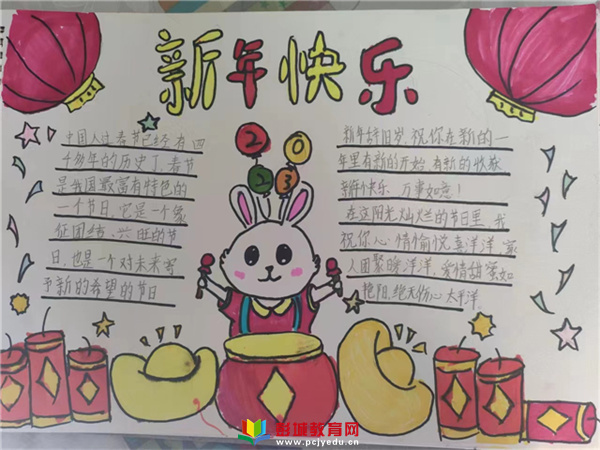 新年快乐
中国人过春节已经有四
千多年的历史了，春节
是我国最富有特色的
一个节日，它是一个象
征团结、兴旺的节
日，也是一个对未来寄
予新的希望的节日
2023
新年辞旧岁，祝你在新的一
年里有新的开始，有新的收获，
新年快乐，万事如意！
在这阳光灿烂的节日里，我
祝你心情愉悦喜洋洋，家
人团聚暖洋洋，爱情甜蜜如
艳阳，绝无伤心太平洋。
彭城教育网
www.pcjyedu.cn